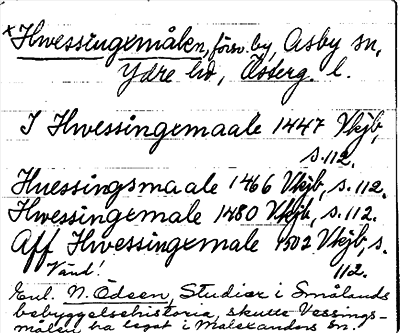 x Hwessingemålen, försv. by, Asby sn,
Ydre hd, Österg. l.
I Hwessingemaale 1447 Vkjb,
s. 112.
Huessingsmaale 1466 Vkjb, s. 112.
Hwessingemale 1480 Vkjb, s. 112.
Aff Hwessingemale 1502 Vkjb, s.
Vänd! 112.
Enl. N. Ödeen, Studier i Smålands
bebyggelsehistoria, skulle Vessings-
målen ha legat i Malexanders sn.